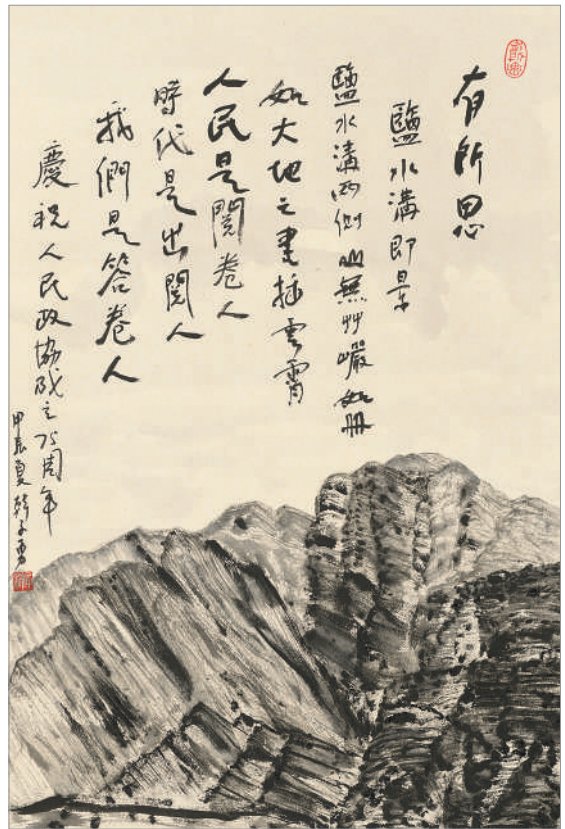 有所思
鹽水溝即景
鹽水溝兩側山無艸巖如冊
如大地之書插雲霄
人民是閱卷人
時代是出閱人
我們是答卷人
慶祝人民政協成立75周年
甲辰夏韓子勇